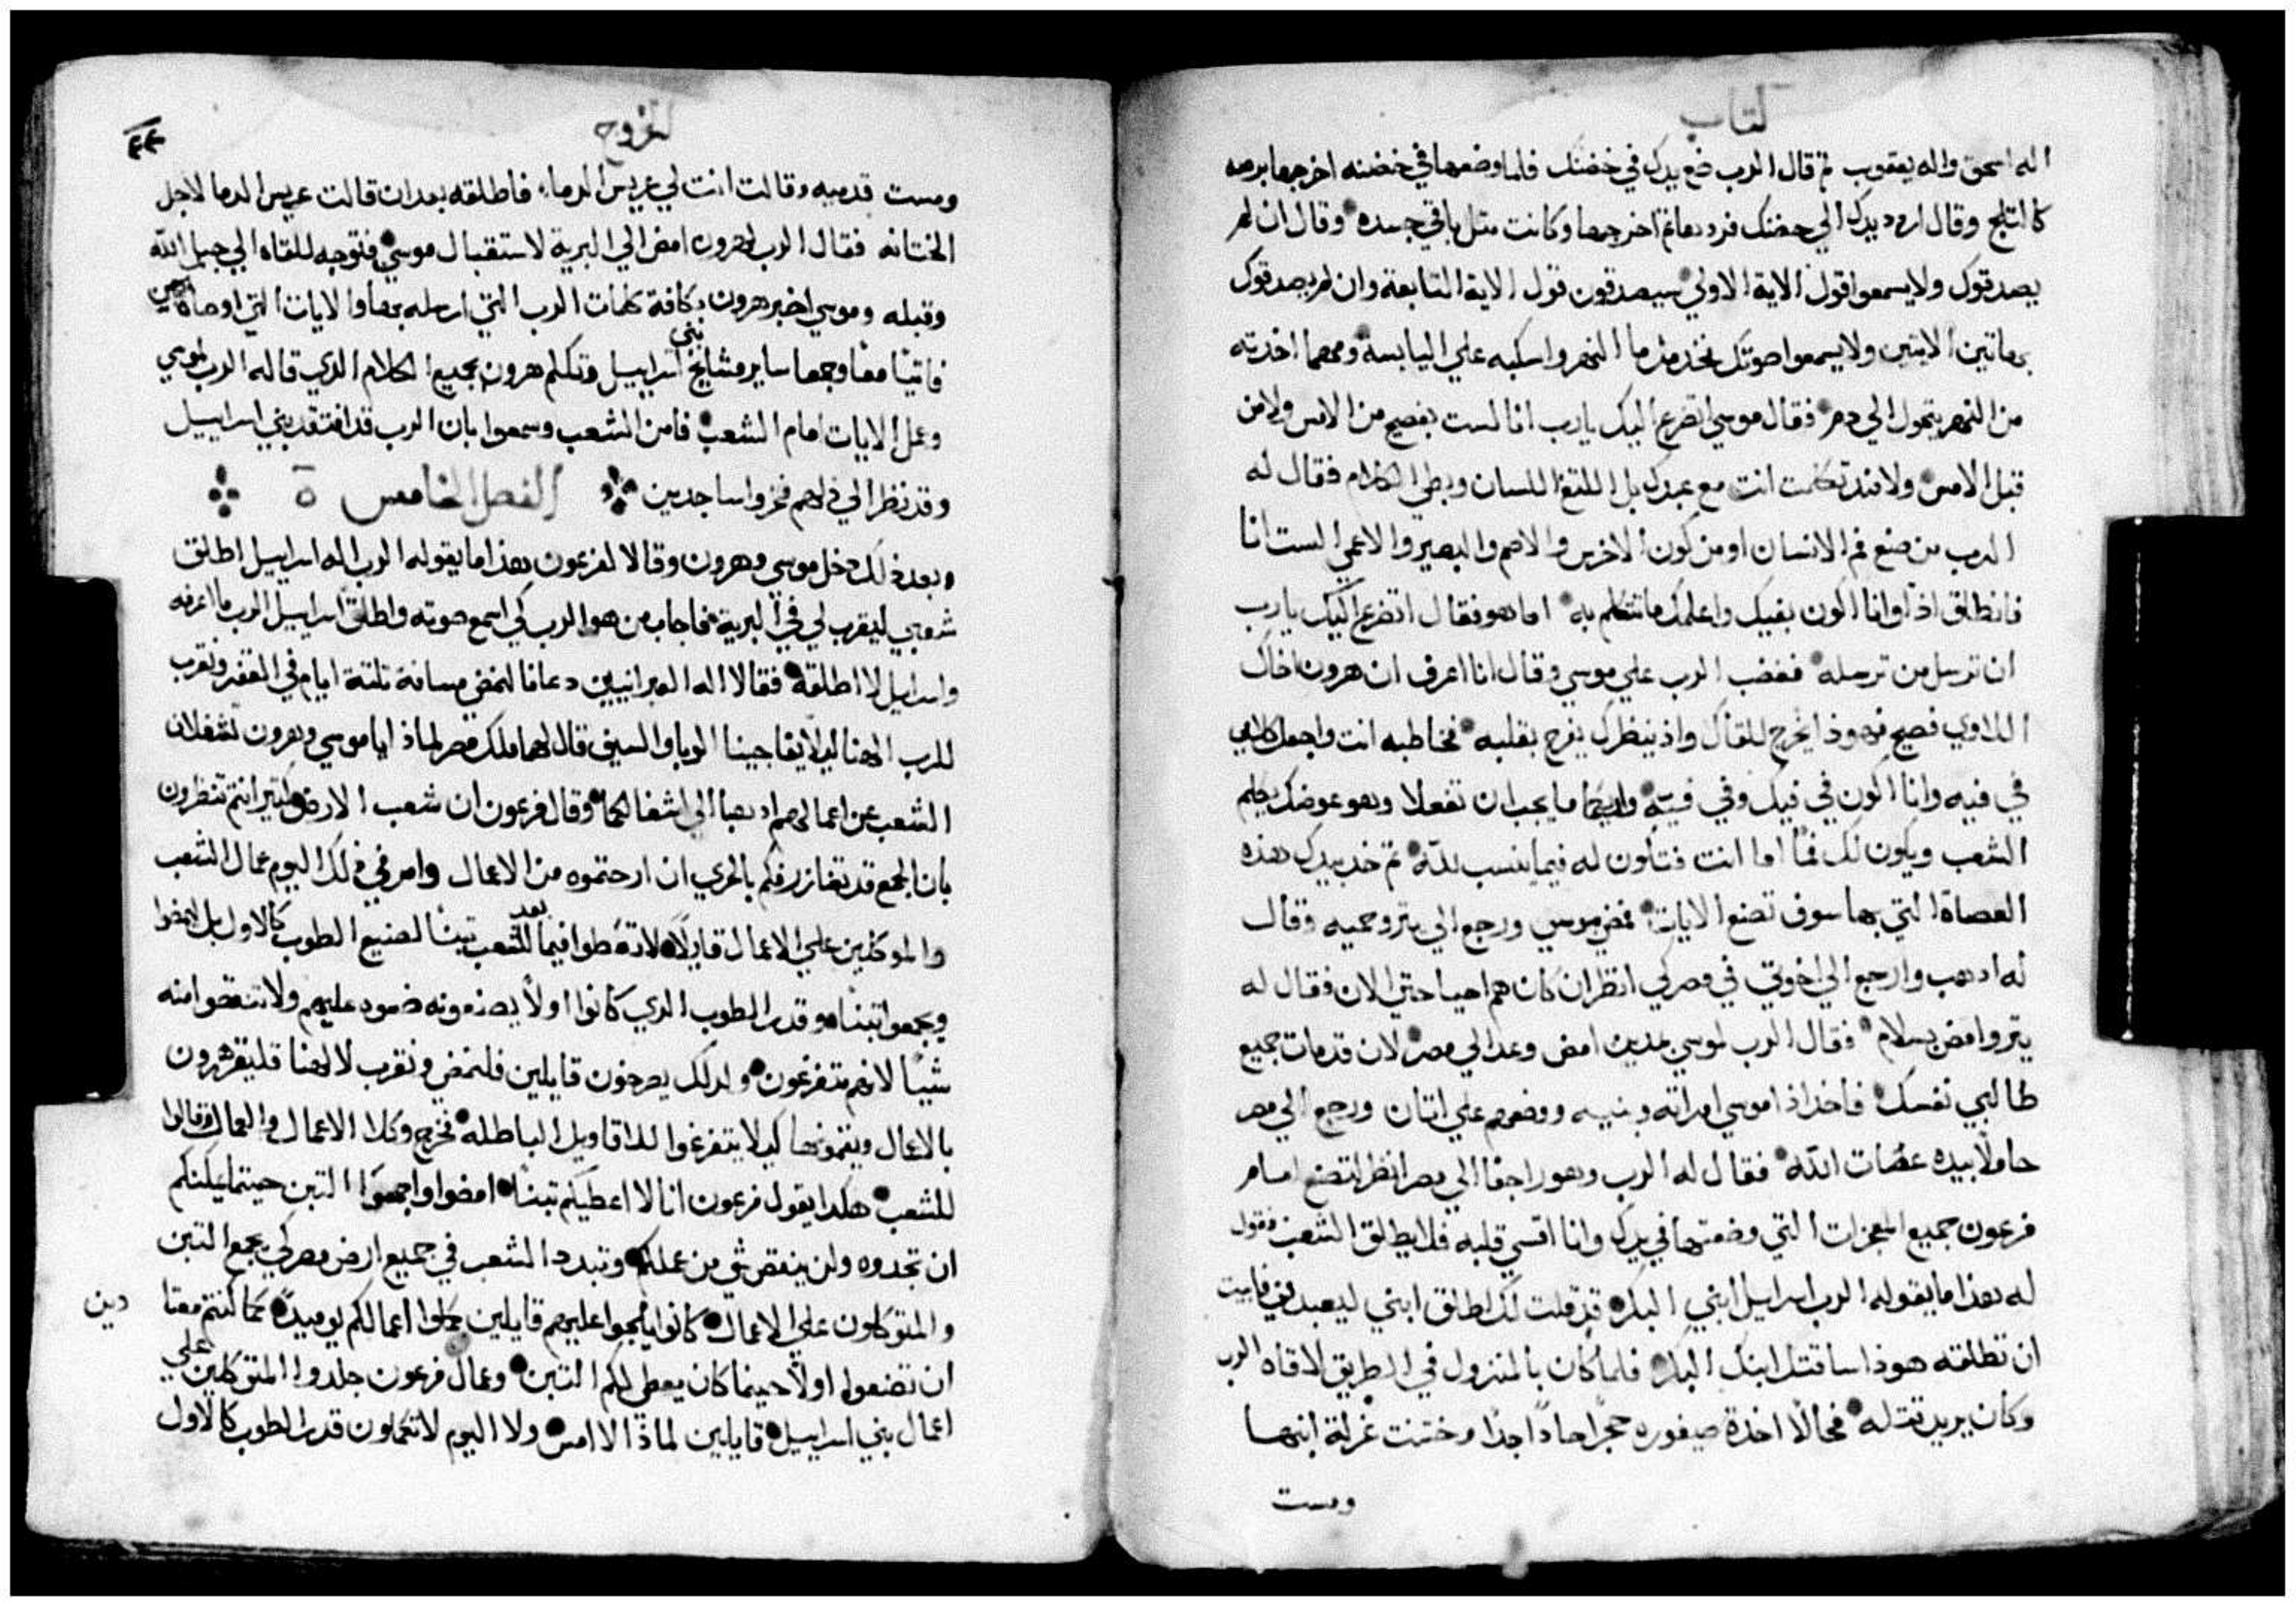 كتاب
اله اسحق واله يعقوب ثم قال الرب ضع يدك في حضنك فلما وضعها في حضنه اخرجها برصه
كالثلج وقال اردد يدك الي حضنك فردها ثم اخرجها وكانت مثل باقي جسده وقال ان لم
يصدقوك ولا يسمعوا قول الاية الاولي سيصدقون قول الاية التابعة وان لم يصدقوك
بهاتين الايتين ولا يسمعوا صوتك فخد من ما النهر واسكبه علي اليابسة ومهما اخدته
من النهر يتحول الي دم فقال موسي اتضرع اليك يارب انا لست بفصيح من الامس ولا من
قبل الامس ولا مند تكلمت انت مع عبدك بل اللتغ اللسان وبطي الكلام فقال له
الرب من صنع فم الانسان او من كون الاخرس والاصم والبصير والاعمي الست انا
فانطلق اذا وانا اكون بفيك واعلمك ما تتكلم به اما هو فقال اتضرع اليك يارب
ان ترسل من ترسله فغضب الرب علي موسي وقال انا اعرف ان هرون اخاك
اللاوي فصيح فهوذا يخرج للقاك واذ ينظرك يفرح بقلبه فخاطبه انت واجعل كلامي
في فيه وانا اكون في فيك وفي فيه واريكما ما يجب ان تفعلا وهو عوضك يكلم
الشعب ويكون لك فماً اما انت فتكون له فيما ينسب لله ثم خد بيدك هذه
العصاة التي بها سوف تصنع الايات فمضي موسي ورجع الي يترو حميه وقال
له ادهب وارجع الي اخوتي في مصر لكي انظر ان كان هم احيا حتي الان فقال له
يترو امض بسلام فقال الرب لموسي بمدين امض وعد الي مصر لان قد مات جميع
طالبي نفسك فاخد اذا موسي امراته وبنيه ووضعهم علي اتان ورجع الي مصر
حاملاً بيده عصات الله فقال له الرب وهو راجعا الي مصر انظر لتصنع امام
فرعون جميع المعجزات التي وضعتها في يدك وانا اقسي قلبه فلا يطلق الشعب فقول
له هذا ما يقوله الرب اسراييل ابني البكر قد قلت لك اطلق ابني ليعبدني فابيت
ان تطلقه هوذا ساقتل ابنك البكر فلما كان بالمنزول في الطريق لاقاه الرب
وكان يريد قتله فحالاً اخدة صيفوره حجراً حاداً جدا وختنت غرلة ابنها
ومست
الخروج
ومست قدميه وقالت انت لي عريس الدماء فاطلقه بعد ان قالت عريس الدما لاجل
الختانه فقال الرب لهرون امض الي البرية لاستقبال موسي فتوجه للقاه الي جبل الله
وقبله وموسي اخبر هرون بكافة كلمات الرب التي ارسله بها والايات التي اوصاه بهن
فاتيا معاً وجمعا ساير مشايخ بني اسراييل وتكلم هرون بجميع الكلام الدي قاله الرب لموسي
وعمل الايات امام الشعب فامن الشعب وسمعوا بان الرب قد افتقد بني اسراييل
وقد نظر الي ذلهم فخروا ساجدين الفصل الخامس ٥
وبعد ذلك دخل موسي وهرون وقالا لفرعون هذا ما يقوله الرب اله اسراييل اطلق
شعبي ليقرب لي في البرية فاجاب من هو الرب كي اسمع صوته واطلق اسراييل الرب ما اعرفه
واسراييل لا اطلقه فقالا اله العبرانيين دعانا لنمض مسافة تلتة ايام في القفر ونقرب
للرب الهنا ليلا يفاجينا الوبا والسيف قال لهما ملك مصر لماذا يا موسي وهرون تشغلان
الشعب عن اعمالهم ادهبا الي اشغالكما وقال فرعون ان شعب الارض كتير انتم تنظرون
بان الجمع قد تغازر فكم بالحري ان ارحتموه من الاعمال وامر في ذلك اليوم عمال الشعب
والموكلين علي الاعمال قايلا لا تعطوا فيما بعد للشعب تبناً لصنيع الطوب كالاول بل امضوا
ويجمعوا تبنا وقدر الطوب الدي كانوا اولاً يصنعونه ضعوه عليهم ولا تنقصوا منه
شياً لانهم متفرغون ولدلك يصرخون قايلين فلنمض ونقرب لالهنا فليقرشون
بالاعمال ويتموها كيلا يتفرغوا للاقاويل الباطله فخرج وكلا الاعمال والعمال وقالوا
للشعب هكدا يقول فرعون انا لا اعطيكم تبناً امضوا واجمعوا التبن حيتما يمكنكم
ان تجدوه ولن ينقص شي من عملكم وتبدد الشعب في جميع ارض مصر كي يجمع التبن
والمتوكلون علي الاعمال كانوا يلجوا عليهم قايلين كملوا اعمالكم يومياً كما كنتم معتادين
ان تصنعوا اولاً حينما كان يعطي لكم التبن وعمال فرعون جلدوا المتوكلين علي
اعمال بني اسراييل قايلين لماذا لا امس ولا اليوم لا تكملون قدر الطوب كالاول